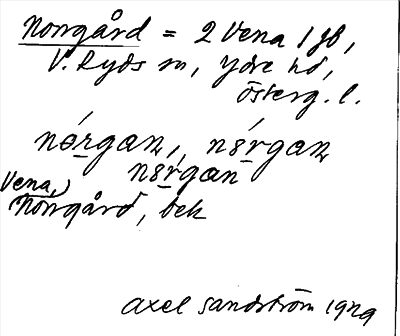 Norrgård = 2 Vena 1 gb,
V. Ryds sn, Ydre hd,
österg. l.
nørgaṇ, nørgaṇ
nørgan
Vena,
Norrgård, bek
Axel Sandström 1929